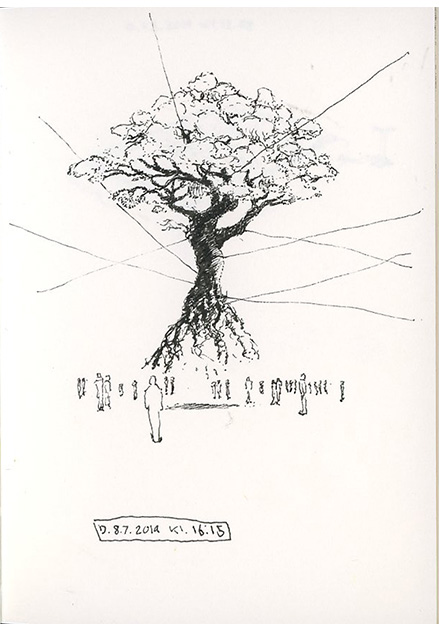 D. 8.7. 2019 Kl. 16.15